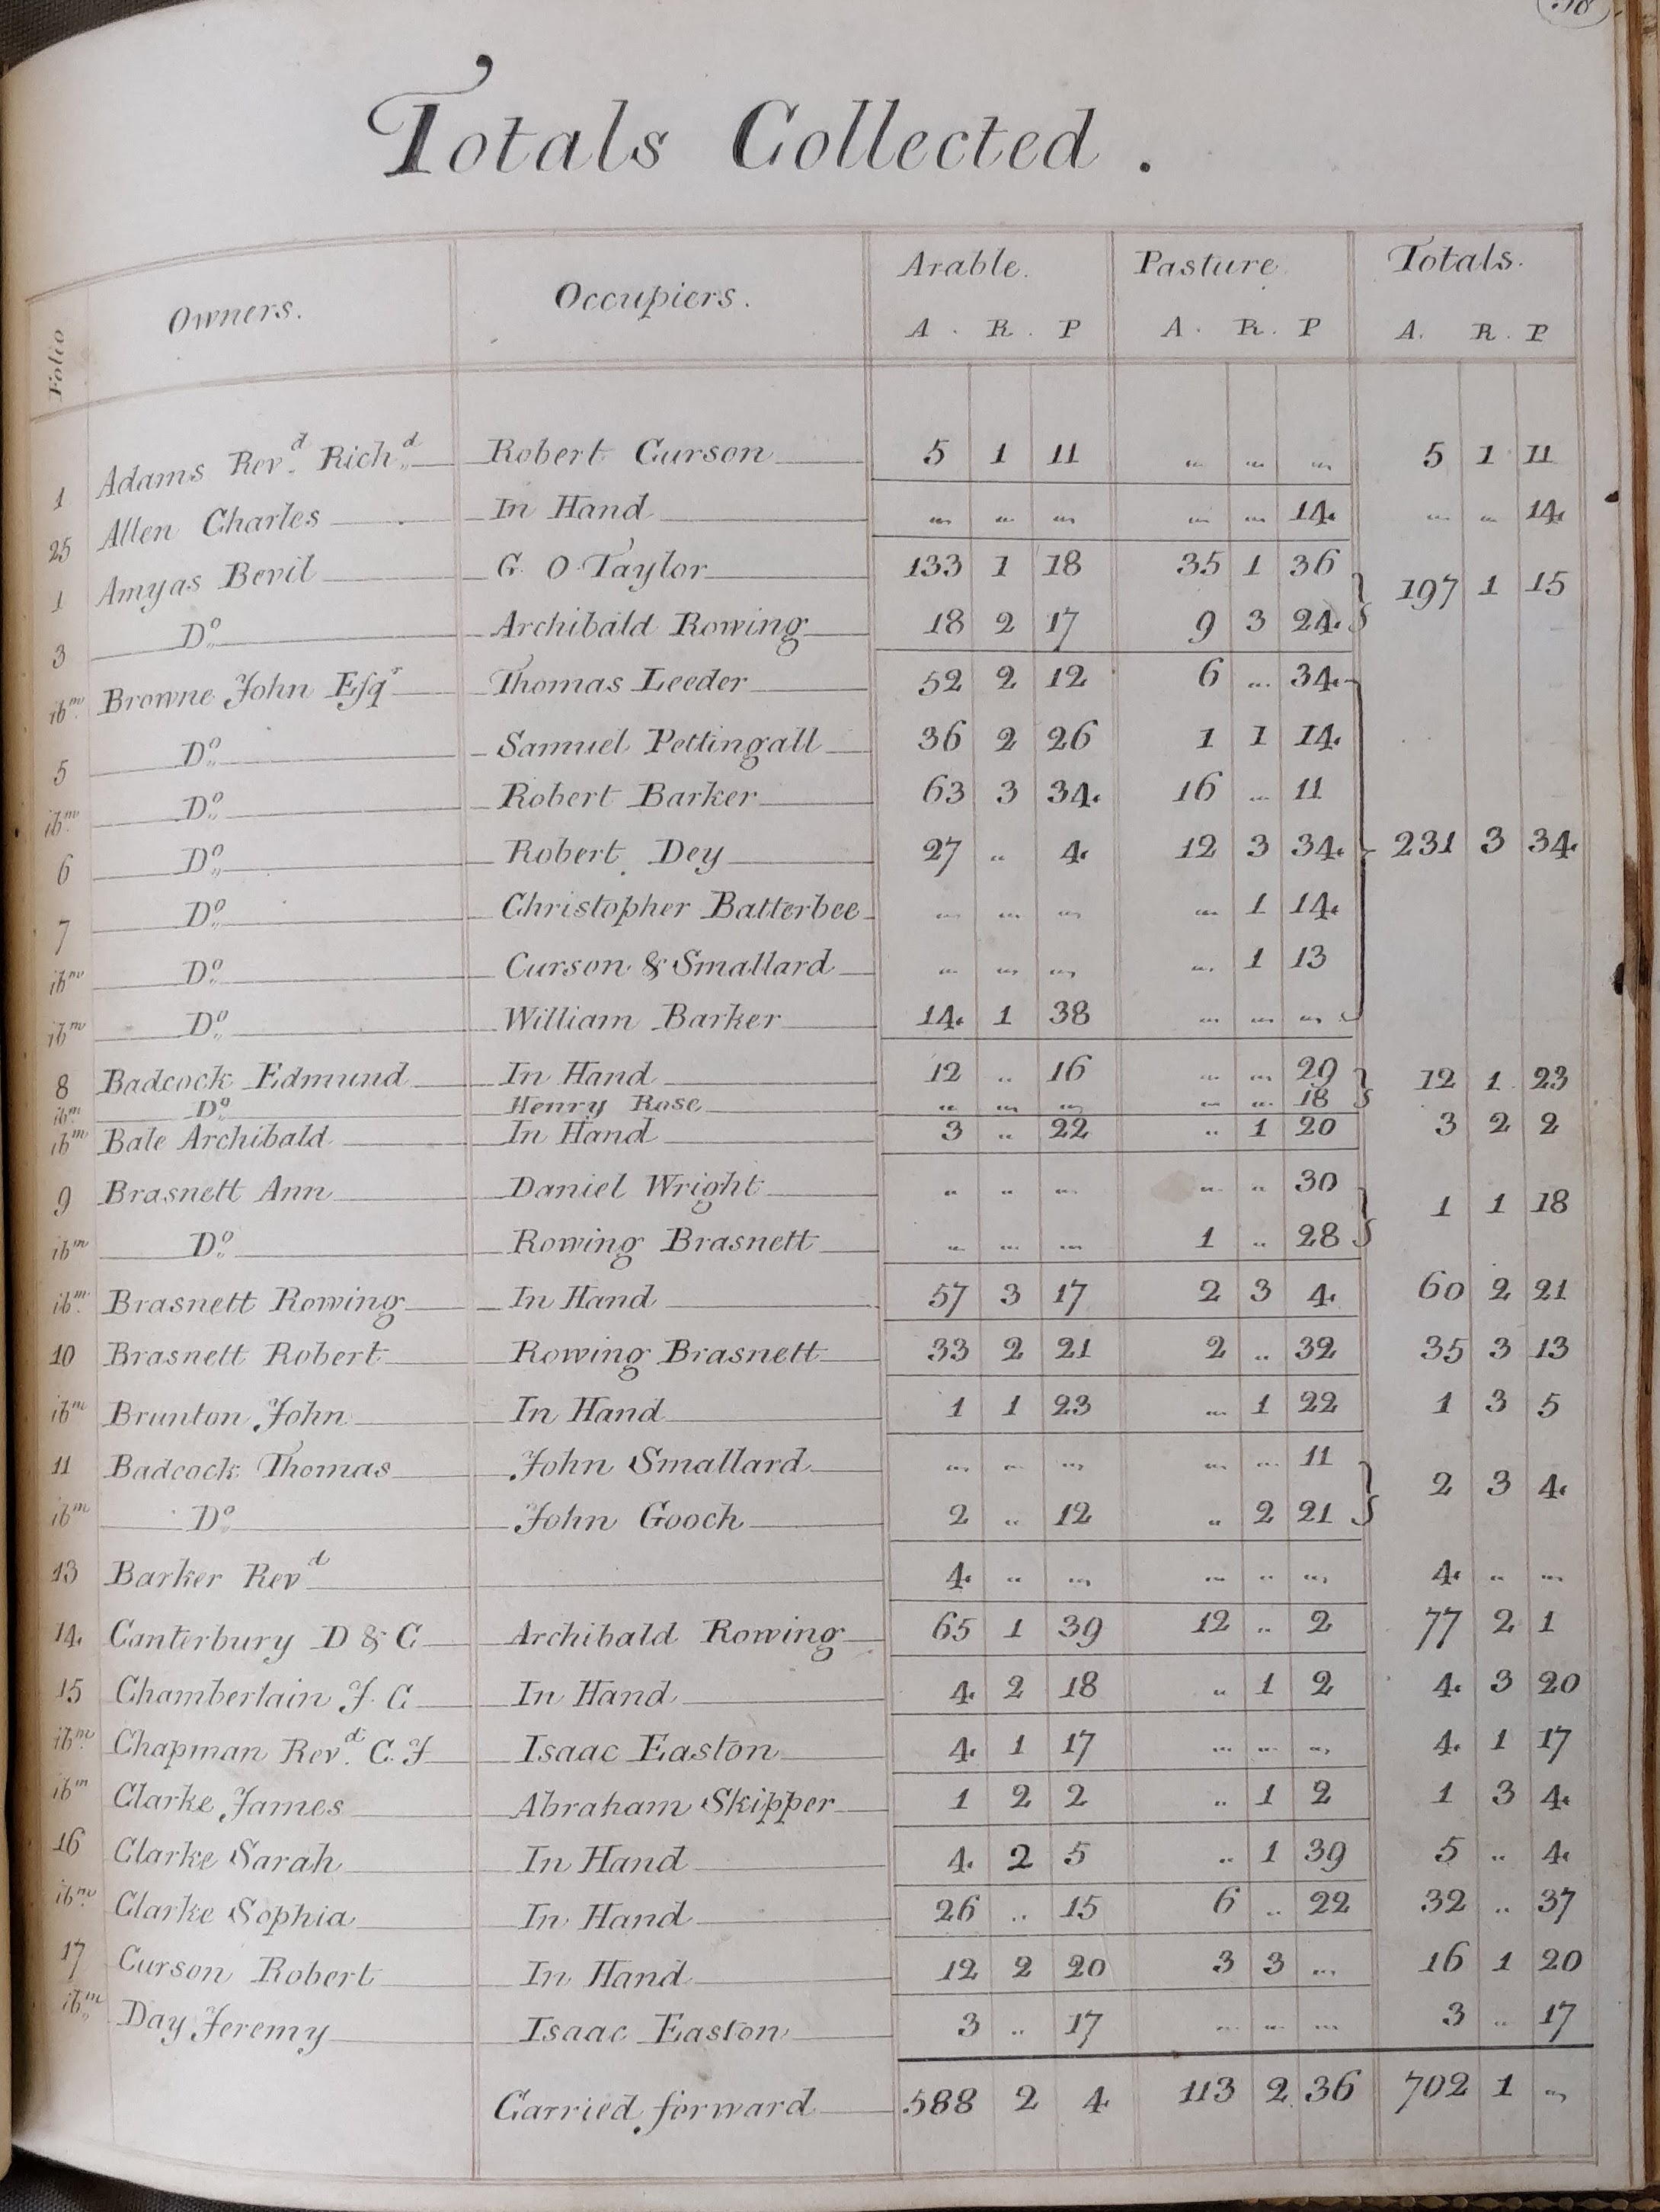 Totals Collected.
Folio Owners. Occupiers. Arable. Pasture. Totals.
A. R. P A. R. P A. R. P
1 Adams Revd. Richd. Robert Curson 5 1 11 ... ... ... 5 1 11
25 Allen Charles In Hand ... ... ... ... ... 14 ... ... 14
1 Amyas Bevil G. O. Taylor 133 1 18 35 1 36 197 1 15
3 Do. Archibald Rowing 18 2 17 9 3 24
ibm. Browne John Esqr Thomas Leeder 52 2 12 6 ... 34
5 Do. Samuel Pettingall 36 2 26 1 1 14
ibm. Do. Robert Barker 63 3 34 16 ... 11
6 Do. Robert Dey 27 .. 4 12 3 34 231 3 34
7 Do. Christopher Batterbee ... ... ... ... 1 14
ibm Do. Curson & Smallard ... ... ... ... 1 13
ibm Do. William Barker 14 1 38 ... ... ...
8 Badcock Edmund In Hand 12 .. 16 ... ... 29 12 1 23
ibm. Do. Henry Rose .. ... ... ... ... 18
ibm Bale Archibald In Hand 3 .. 22 .. 1 20 3 2 2
9 Brasnett Ann Daniel Wright .. .. ... ... .. 30 1 1 18
ibm Do. Rowing Brasnett .. ... ... 1 .. 28
ibm. Brasnett Rowing In Hand 57 3 17 2 3 4 60 2 21
10 Brasnett Robert Rowing Brasnett 33 2 21 2 .. 32 35 3 13
ibm Brunton John In Hand 1 1 23 ... 1 22 1 3 5
11 Badcock Thomas John Smallard ... ... ... ... ... 11 2 3 4
ibm Do. John Gooch 2 .. 12 .. 2 21
13 Barker Revd 4 .. ... ... .. ... 4 .. ...
14 Canterbury D & C Archibald Rowing 65 1 39 12 .. 2 77 2 1
15 Chamberlain J. C In Hand 4 2 18 .. 1 2 4 3 20
ibm. Chapman Revd. C. J Isaac Easton 4 1 17 ... ... ... 4 1 17
ibm Clarke James Abraham Skipper 1 2 2 .. 1 2 1 3 4
16 Clarke Sarah In Hand 4 2 5 .. 1 39 5 .. 4
ibm. Clarke Sophia In Hand 26 .. 15 6 .. 22 32 .. 37
17 Curson Robert In Hand 12 2 20 3 3 ... 16 1 20
ibm. Day Jeremy Isaac Easton 3 .. 17 ... ... ... 3 .. 17
Carried forward 588 2 4 113 2 36 702 1 ...